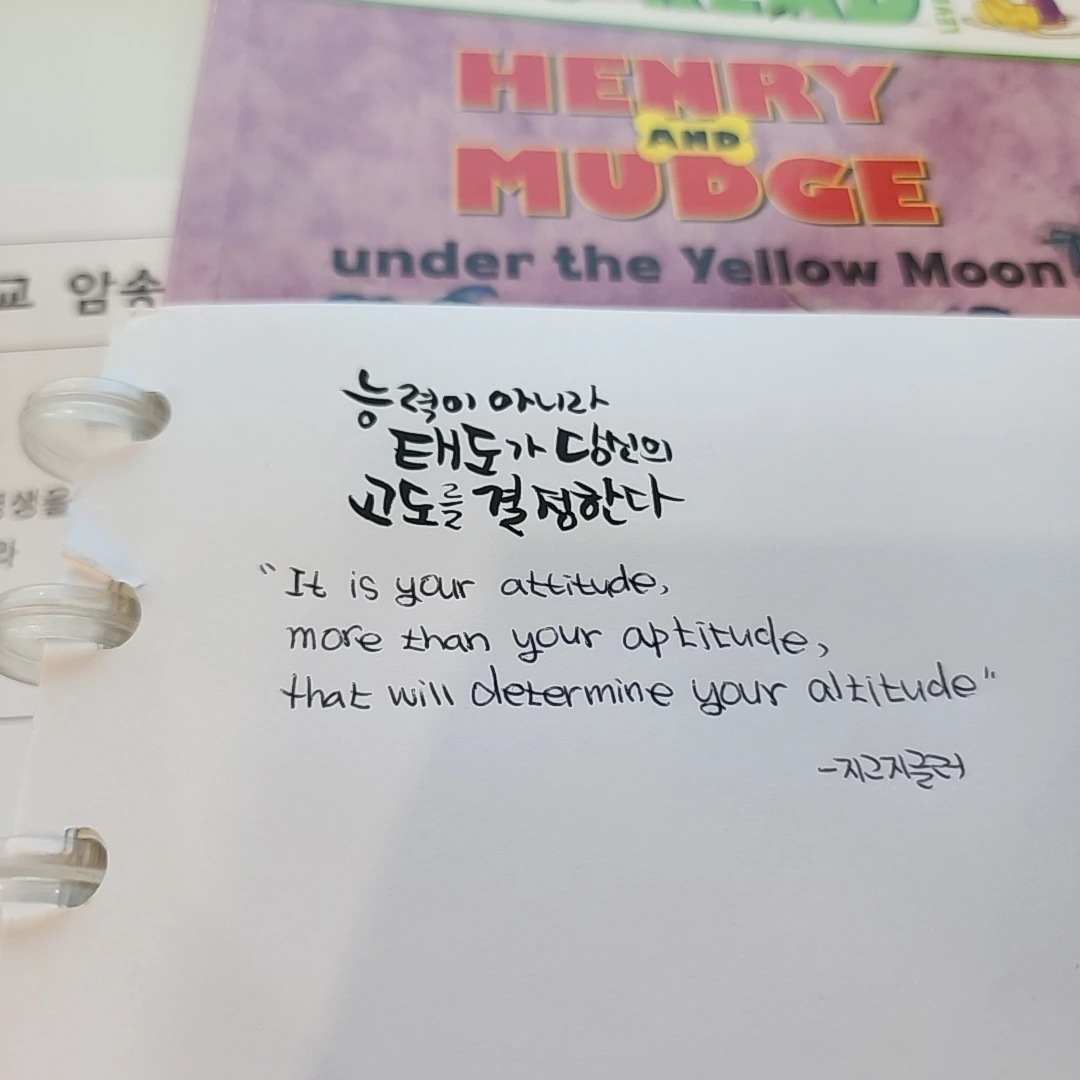 HENRY
AND
MUDGE
under the Yellow Moon
교 암송
능력이 아니라
태도가 당신의
고도를 결정한다
"It is your attitude,
more than your aptitude,
that will determine your altitude"
-지그지글러